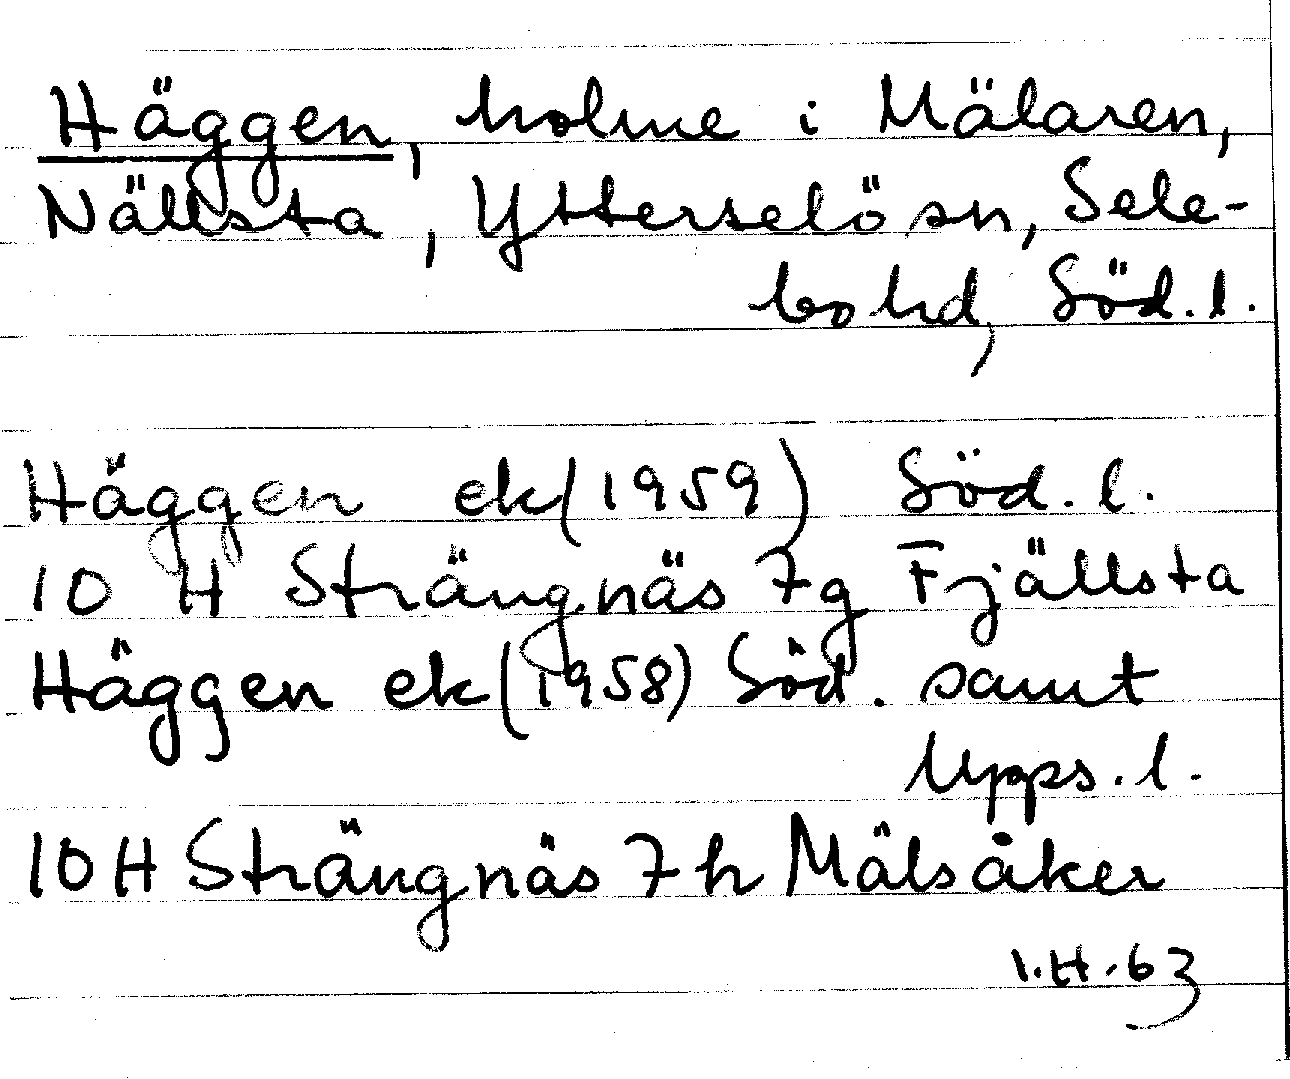 Häggen, holme i Mälaren,
Nällsta, Ytterselö sn, Sele-
bo hd, Söd. l.
Häggen ek (1959) Söd. l.
10 H Strängnäs 7g Fjällsta
Häggen ek (1958) Söd. samt
Upps. l.
10 H Strängnäs 7h Mälsåker
I.H. 63